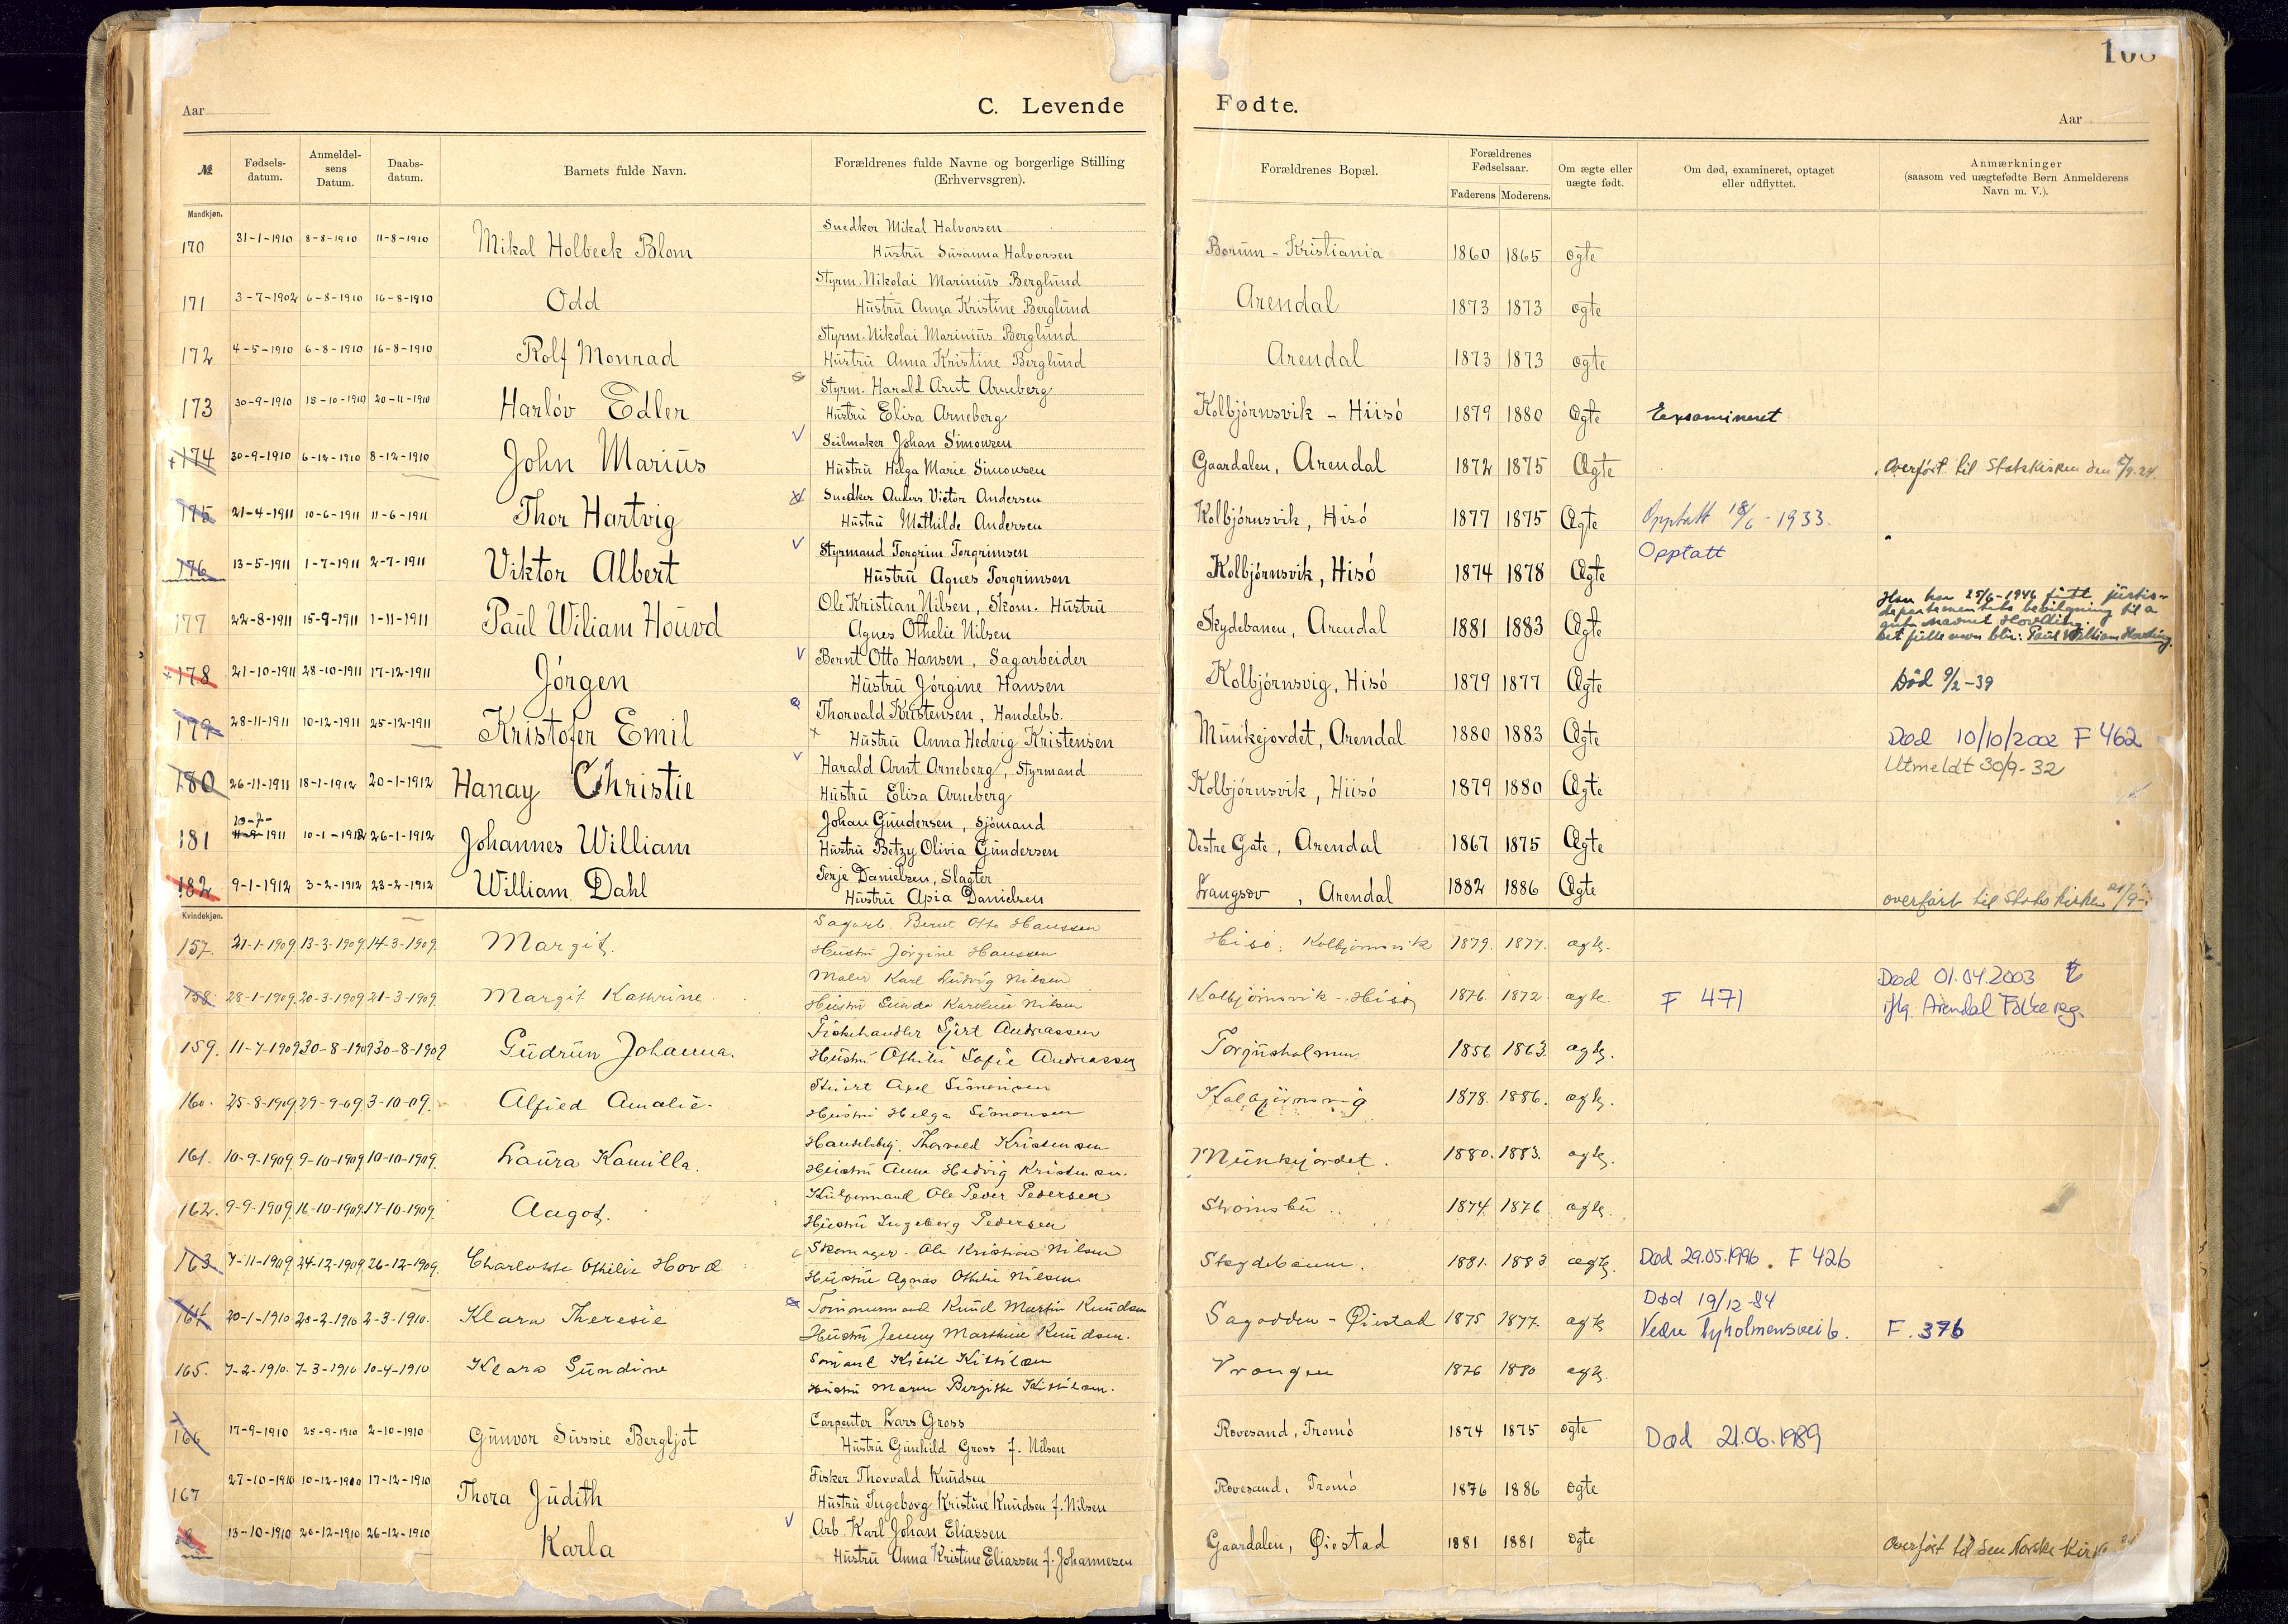 108
Aar
C. Levende Fødte.
Aar
№ Fødsels-datum. Anmeldel-sens Datum. Daabs-datum. Barnets fulde Navn. Forældrenes fulde Navne og borgerlige Stilling (Erhvervsgren). Forældrenes Bopæl. Forældrenes Fødselsaar. Faderens Moderens. Om ægte eller uægte født. Om død, examineret, optaget eller udflyttet. Anmærkninger (saasom ved uægtefødte Børn Anmelderens Navn m. V.).
Mandkjøn.
170 31-1-1910 8-8-1910 11-8-1910 Mikal Holbeck Blom Snedker Mikal Halvorsen
Hustru Susanna Halvorsen Borum - Kristiania 1860 1865 ogte
171 3-7-1902 6-8-1910 16-8-1910 Odd Styrm. Nikolai Marinius Berglund
Hustru Anna Kristine Berglund Arendal 1873 1873 ogte
172 4-5-1910 6-8-1910 16-8-1910 Rolf Monrad Styrm. Nikolai Marinius Berglund
Hustru Anna Kristine Berglund Arendal 1873 1873 ogte
173 30-9-1910 15-10-1910 20-11-1910 Harlóv Edler Styrm. Harald Arnt Arneberg
Hustru Elisa Arneberg Kolbjórnsvik - Hiisó 1879 1880 Ægte Eexsamineret
174 30-9-1910 6-12-1910 8-12-1910 John Marius Seilmaker Johan Simonsen
Hustru Helga Marie Simonsen Gaardalen, Arendal 1872 1875 Ægte Overført til Statskirken den /9.24.
175 21-4-1911 10-6-1911 11-6-1911 Thor Hartvig Snedker Anders Victor Andersen
Hustru Mathilde Andersen Kolbjórnsvik, Hisó 1877 1875 Ægte Opptatt 18/6 - 1933.
176 13-5-1911 1-7-1911 2-7-1911 Viktor Albert Styrmand Torgrim Torgrimsen
Hustru Agnes Torgrimsen Kolbjórnsvik, Hisó 1874 1878 Ægte Opptatt
177 22-8-1911 15-9-1911 1-11-1911 Paul Wiliam Houvd Ole Kristian Nilsen, Skom. Hustru
Agnes Othelie Nilsen Skydebanen, Arendal 1881 1883 Ægte Han har 25/6-1946 fått justis-
departementets bevilgning til å
navnet Hovding.
Det fulle navn blir: Paul William Hovding.
178 21-10-1911 28-10-1911 17-12-1911 Jórgen Bernt Otto Hansen, Sagarbeider
Hustru Jórgine Hansen Kolbjórnsvig, Hisó 1879 1877 Ægte Død 9/2-39
179 28-11-1911 10-12-1911 25-12-1911 Kristofer Emil Thorvald Kristensen, Handelsb.
Hustru Anna Hedvig Kristensen Munkejordet, Arendal 1880 1883 Ægte Død 10/10/2002 F 462
180 26-11-1911 18-1-1912 20-1-1912 Hanay Christie Harald Arnt Arneberg, Styrmand
Hustru Elisa Arneberg Kolbjórnsvik, Hiisó 1879 1880 Ægte Utmeldt 30/9-32
181 10-7- 11-9-1911 10-1-1912 26-1-1912 Johannes William Johan Gundersen, Sjómand
Hustru Betzy Olivia Gundersen Vestre Gate, Arendal 1867 1875 Ægte
182 9-1-1912 3-2-1912 23-2-1912 William Dahl Terje Danielsen, Slagter
Hustru Apia Danielsen Langsøv, Arendal 1882 1886 Ægte overført til Statskirken 21/9-
Kvindekjøn.
157. 21-1-1909. 13-3-1909. 14-3-1909. Margit. Sagarb. Bernt Otto Hanssen
Hustru Jørgine Hanssen Hisø, Kolbjørnsvik 1879. 1877. ægte.
158. 28-1-1909. 20-3-1909. 21-3-1909. Margit Kathrine. Maler Karl Ludvig Nilsen
Hustru Gunda Karoline Nilsen Kolbjørnsvik - Hisø 1876. 1872. ægte. F 471 Død 01.04.2003
iflg. Arendal Folkereg.
159. 11-7-1909 30-8-1909 30-8-1909 Gudrun Johanna. Fiskehandler Gjert Andreassen
Hustru Othilie Sofie Andreassen Torjusholmen 1856 1863. ægte.
160. 25-8-1909. 29-9-09. 3-10-09. Alfied Amalie. Stuert Axel Simonsen
Hustru Helga Simonsen Kolbjørnsvig 1878. 1886. ægte.
161. 10-9-1909. 9-10-1909. 10-10-1909. Laura Kamilla. Handelsbetj. Thorvald Kristensen
Hustru Anna Hedvig Kristensen. Munkejordet. 1880. 1883. ægte.
162. 9-9-1909. 16-10-1909. 17-10-1909. Aagot. Ole Peder Pedersen
Hustru Ingeborg Pedersen Strømsbu 1874. 1876 ægte.
163 7-11-1909. 24-12-1909. 26-12-1909. Charlotte Othilie Hovd Skomager. Ole Kristian Nilsen
Hustru Agnas Othilie Nilsen. Skydebanen. 1881. 1883 ægte. Død 29.05.1996. F 426
164 20-1-1910 20-2-1910 2-3-1910. Klara Theresie Tømmermand Knud Martin Knudsen
Hustru Jenny Marthine Knudsen. Sagodden - Øiestad 1875 1877. ægte Død 19/12-84
Vedre Tyholmensvei 6. F. 376
165. 7-2-1910. 7-3-1910 10-4-1910 Klara Gundine Sømand Kissil Kissilsen
Hustru Maren Bergitte Kissilsen. Vrangen 1876 1880 ægte.
166 17-9-1910 25-9-1910 2-10-1910 Gunvor Sussie Bergljot Carpenter Lars Gross
Hustru Gunhild Gross f. Nilsen Rovesand, Tromó 1874 1875 ogte Død 21.06.1989
167 27-10-1910 10-12-1910 17-12-1910 Thora Judith Fisker Thorvald Knudsen
Hustru Ingeborg Kristine Knudsen f. Nilsen Rovesand, Tromó 1876 1886 ogte
13-10-1910 20-12-1910 26-12-1910 Karla Arb. Karl Johan Eliassen
Hustru Anna Kristine Eliassen f. Johannesen Gaardalen, Øiestad 1881 1881 ogte Overført til den Norske Kirke